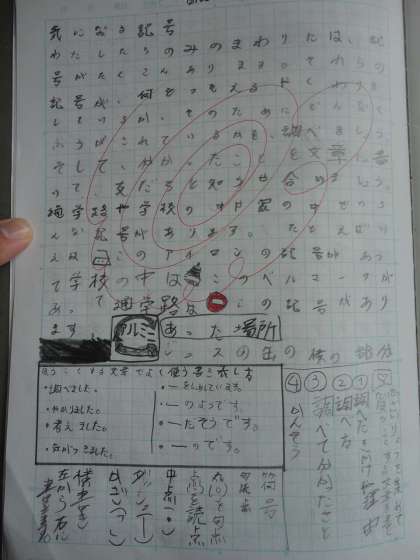 気になる記号
わたしたちのみのまわりには、記
号がたくさんあります。それらの
記号が、何をつたえる
しているか、そのために どんなく
ふうがされているかを、調べましょう。
そして、分かったことを文章に書
いて、友だちと知らせ合いましょう。
通学路や学校の中、家の中でどん
な記号があります。たとえば
このアイロンの記号があっ
て学校の中は このベルマークが
あって 通学路は この記号があり
ます アルミ あった場所
ジュースの缶の横の部分
文章でよく使う書き表し方
・調べました。
・分かりました。
・考えました。
・気がつきました。
・〜のようです。
・〜だそうです。
・〜のです。
①調べたきっかけや理由
②調べ方
③調べて分かったこと
④かんそう
符号
句読点
丸(。)を句点
点(、)を読点
中点(・)
ダッシュ(―)
横書き
左から右に